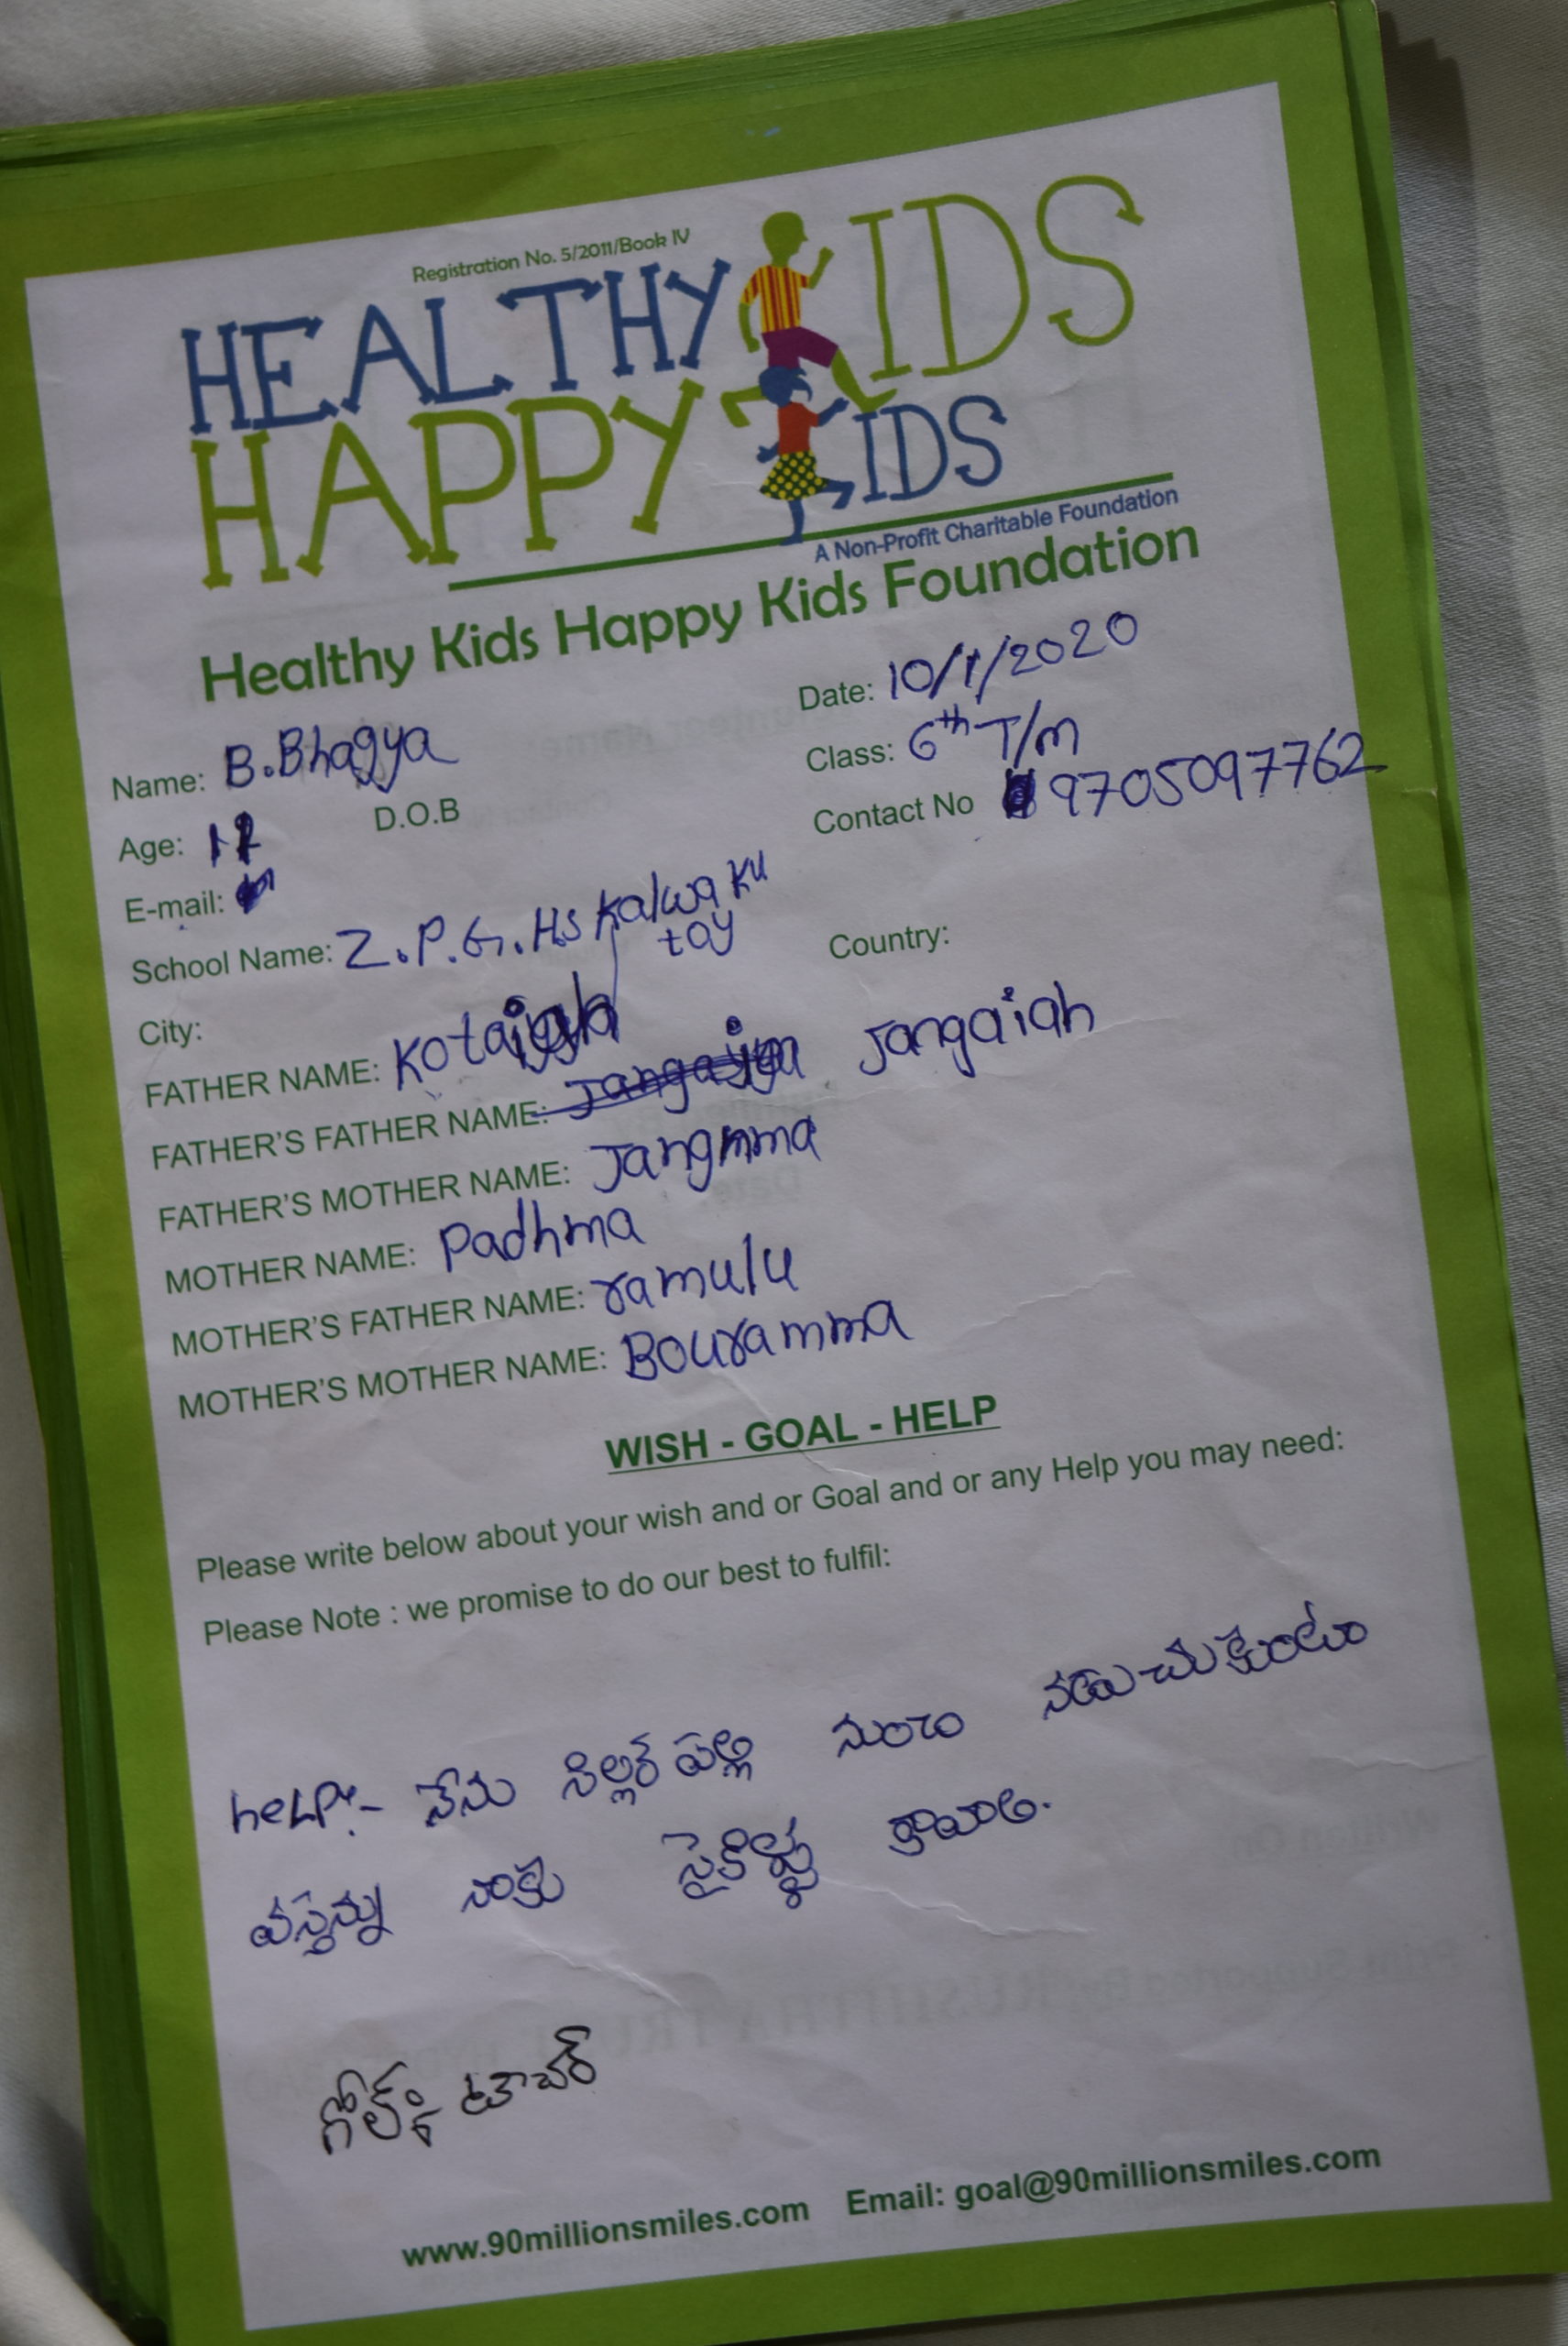 Registration No. 5/2011/Book IV
HEALTHY KIDS
HAPPY KIDS
A Non-Profit Charitable Foundation
Healthy Kids Happy Kids Foundation
Date: 10/1/2020
Name: B.Bhagya
Class: 6th T/m
Age: D.O.B
Contact No 9705097762
E-mail:
School Name: Z.P.G.HS Kalwaku
toy
City: Country:
FATHER NAME: Kotaigh
FATHER'S FATHER NAME: Jangaiah
FATHER'S MOTHER NAME: Jangmma
MOTHER NAME: Padhma
MOTHER'S FATHER NAME: ramulu
MOTHER'S MOTHER NAME: Bouramma
WISH - GOAL - HELP
Please write below about your wish and or Goal and or any Help you may need:
Please Note : we promise to do our best to fulfil:
heLP:- నేను పల్లి నుంచి నడుచుకుంటు
వస్తున్ను నాకు కావాలి.
గోల్: టీచర్
www.90millionsmiles.com Email: goal@90millionsmiles.com